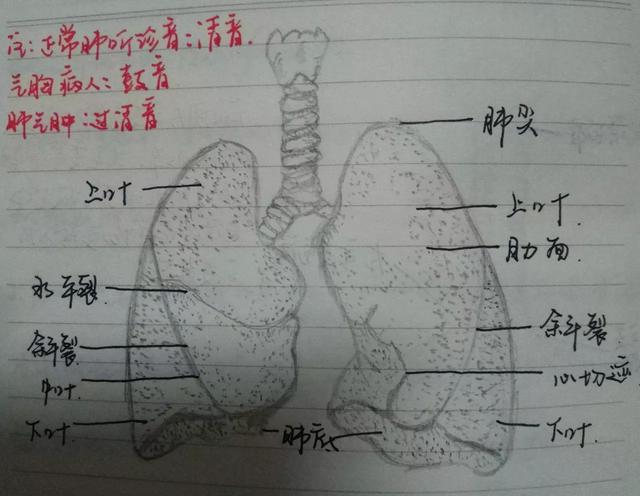 注:正常肺听诊音:清音.
气胸病人:鼓音
肺气肿:过清音
肺尖
上叶
上叶
肋面
水平裂
斜裂
斜裂
中叶
心切迹
下叶
肺底
下叶